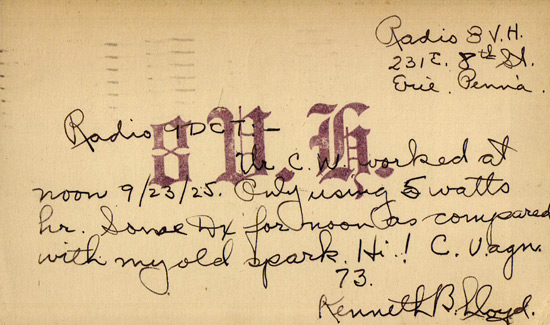 Radio 8 V.H.
231 E. 8th St.
Erie. Penna.
Radio 9DCT:-
8V.H.
Ur C.W. worked at
noon 9/23/25. Only using 5 watts
hr. Some Dx for noon as compared
with my old spark. Hi! C.U.agn.
73.
Kenneth B. Lloyd.